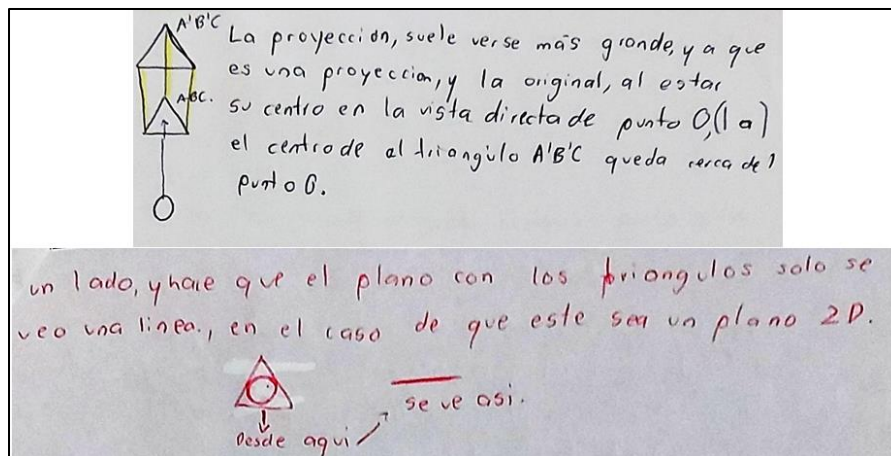 A'B'C
La proyección, suele verse más grande, ya que
es una proyeccion, y la original, al estar
ABC.
su centro en la vista directa de punto O, (1 a)
el centro de al triangulo A'B'C queda cerca del
punto O.
un lado, y hace que el plano con los triangulos solo se
vea una linea., en el caso de que este sea un plano 2D.
se ve asi.
Desde aqui